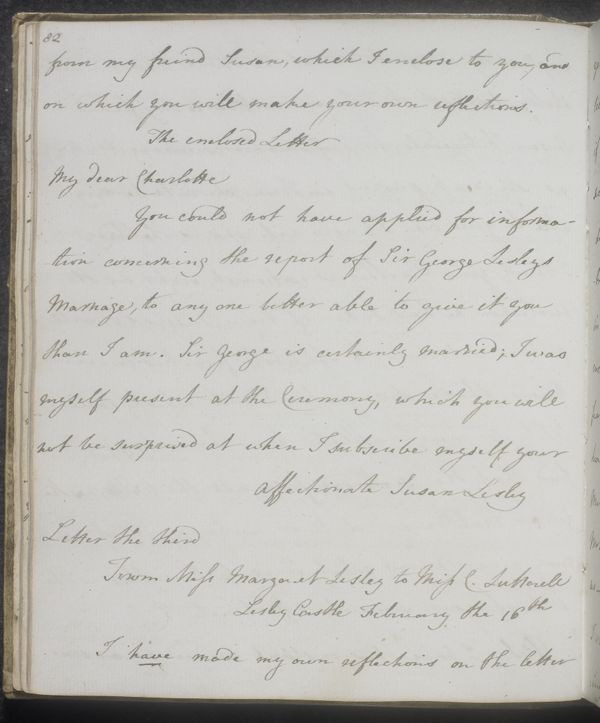 82
from my freind Susan, which I enclose to you, and
on which you will make your own reflections.
The enclosed Letter
My dear Charlotte
You could not have applied for informa-
tion concerning the report of Sir George Lesleys
Marriage, to any one better able to give it you
than I am. Sir George is certainly married; I was
myself present at the Ceremony, which you will
not be surprised at when I subscribe myself your
affectionate Susan Lesley
Letter the third
From Miss Margaret Lesley to Miss C. Lutterell
Lesley Castle February the 16th
I have made my own reflections on the letter